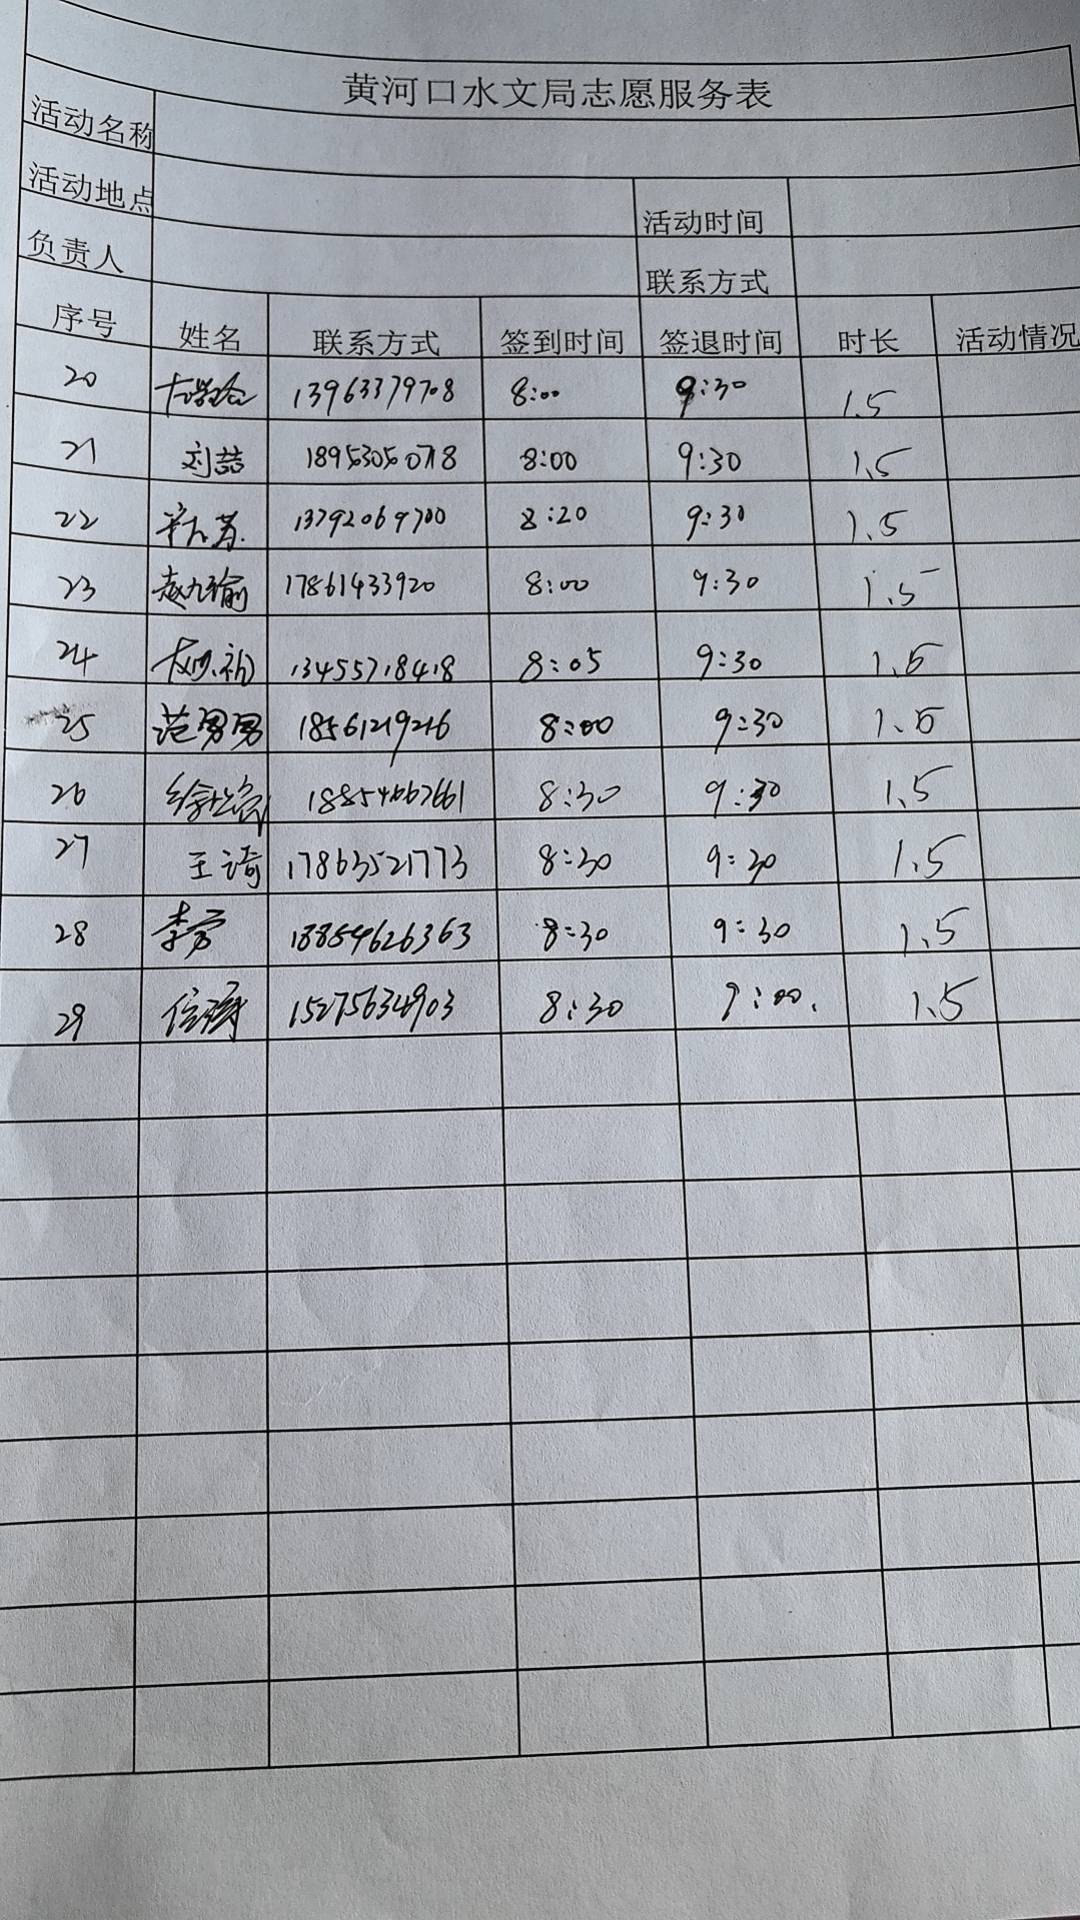 黄河口水文局志愿服务表
活动名称
活动地点 活动时间
负责人 联系方式
序号 姓名 联系方式 签到时间 签退时间 时长 活动情况
20 13963379708 8:00 9:30 1.5
21 刘喆 18953050718 8:00 9:30 1.5
22 13792069700 8:20 9:30 1.5
23 17861433920 8:00 9:30 1.5
24 13455718418 8:05 9:30 1.5
25 范男男 18561219216 8:00 9:30 1.5
26 8:30 9:30 1.5
27 王琦 17863521773 8:30 9:30 1.5
28 李芳 18854626363 8:30 9:30 1.5
29 15275634903 8:30 9:00. 1.5